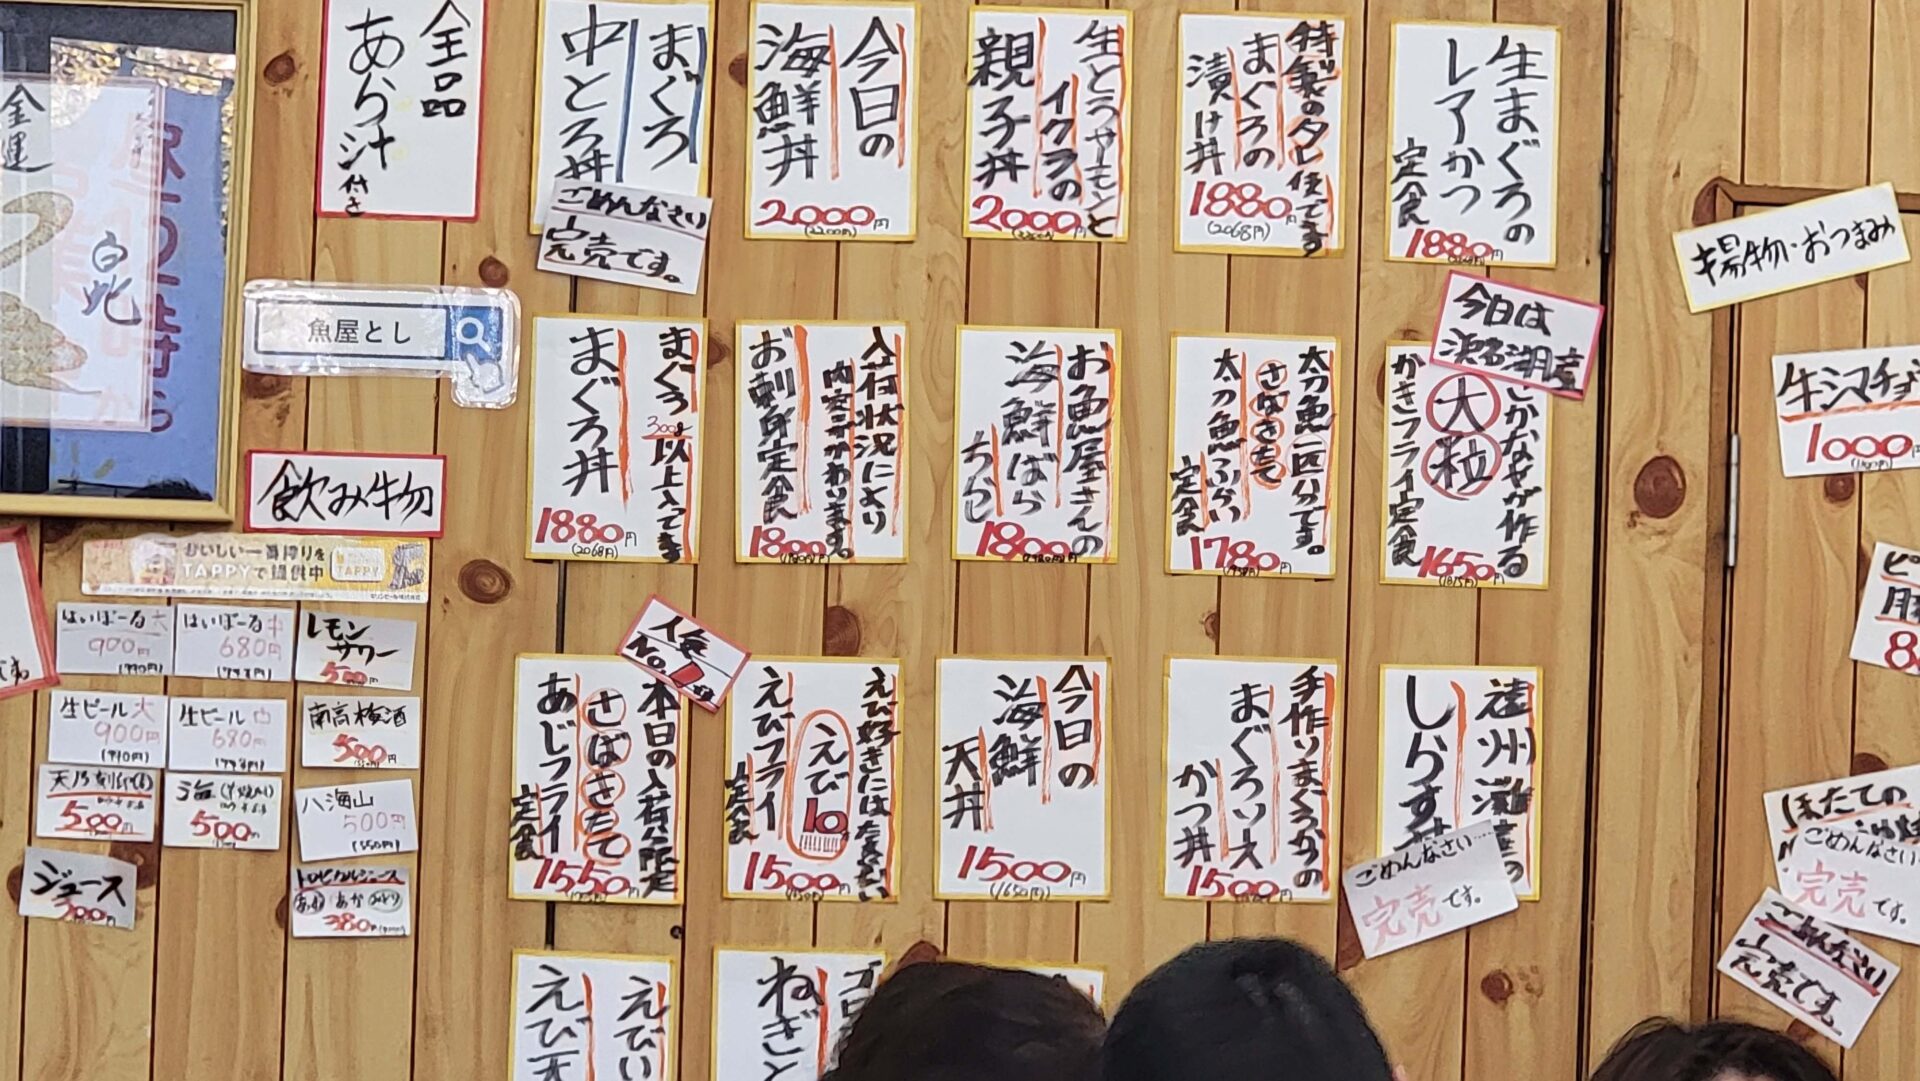 全品
あら汁
付き
まぐろ
中とろ丼
ごめんなさい
完売です。
今日の
海鮮丼
2000円
(2200円)
生とろサーモンと
イクラの
親子丼
2000円
特製のタレ使ってます
まぐろの
漬け丼
1880円
(2068円)
生まぐろの
レアかつ
定食
1880円
揚物・おつまみ
金運
白蛇
魚屋とし
まぐろ
300g以上入ってます
まぐろ丼
1880円
(2068円)
入荷状況により
内容がかわります。
お刺身定食
1800円
お魚屋さんの
海鮮ばら
ちらし
1800円
(1980円)
太刀魚一匹分です。
さばきたて
太刀魚ふらい
定食
1780円
今日は
浜名湖産
さかなやが作る
大粒
かきフライ定食
1650円
牛シマチョ
1000円
飲み物
おいしい一番搾りを
TAPPYで提供中
TAPPY
はいぼーる大
900円
(990円)
はいぼーる中
680円
レモン
サワー
500円
生ビール大
900円
(990円)
生ビール中
680円
南高梅酒
500円
500円
500円
八海山
500円
(550円)
ジュース
トロピカルジュース
380円
人気
No.1
本日の入荷分限定
さばきたて
あじフライ
定食
1550円
えび好きにはたまらない
えび10
えびフライ
定食
1500円
今日の
海鮮
天丼
1500円
(1650円)
手作りまぐろかつの
まぐろソース
かつ丼
1500円
遠州灘産の
しらす丼
ごめんなさい…
完売です。
ほたての
ごめんなさい…
完売です。
ごめんなさい
完売です。
えびい
えび天
ねぎと